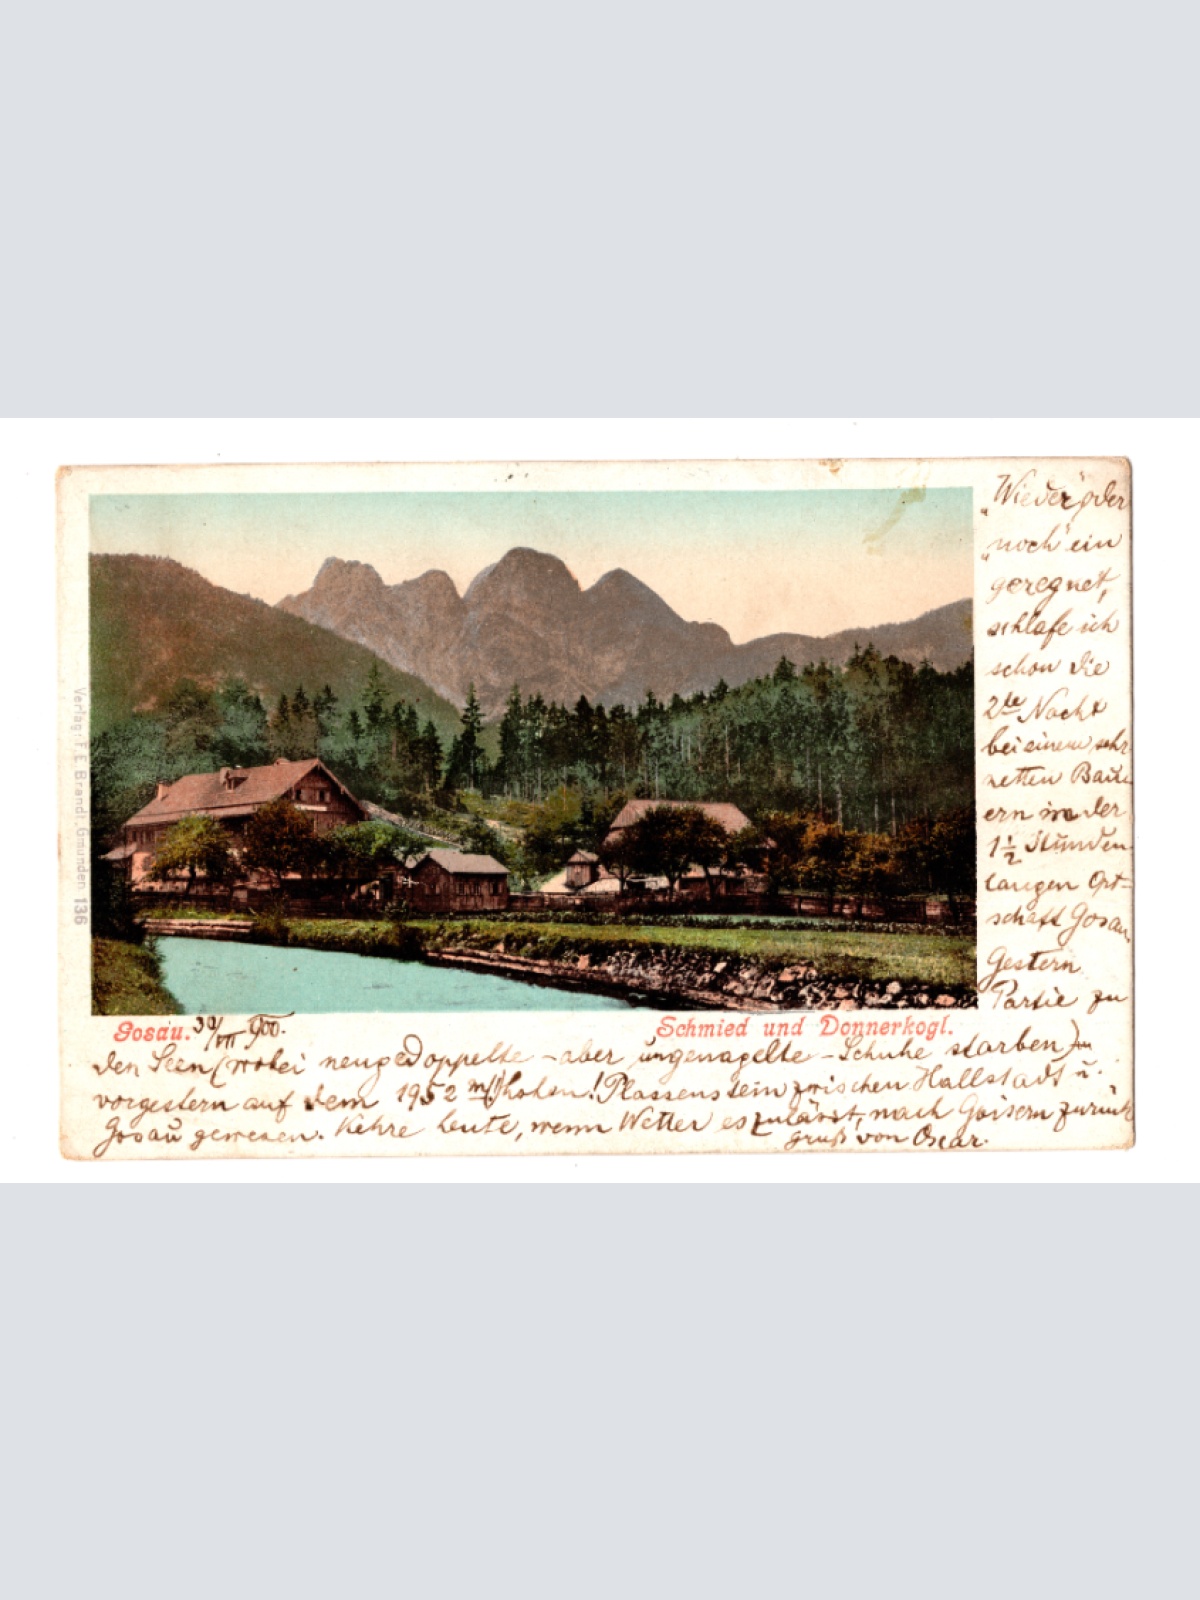 "Wieder" oder
"noch" ein
geregnet,
schlafe ich
schon die
2te Nacht
bei einem sehr
netten Bau
ern in der
1½ Stunden
langen Ort-
schaft Gosau.
Gestern
Partie zu
Verlag: F. E. Brandt, Gmunden 136
Gosau. 30/VII 900.
Schmied und Donnerkogl.
den Seen (wobei neugedoppelte - aber ungenagelte - Schuhe starben)
vorgestern auf dem 1952 m (!) hohen! Plassenstein zwischen Hallstadt u.
Gosau gewesen. Kehre heute, wenn Wetter es zulässt, nach Goisern zurück
Gruß von Oscar.